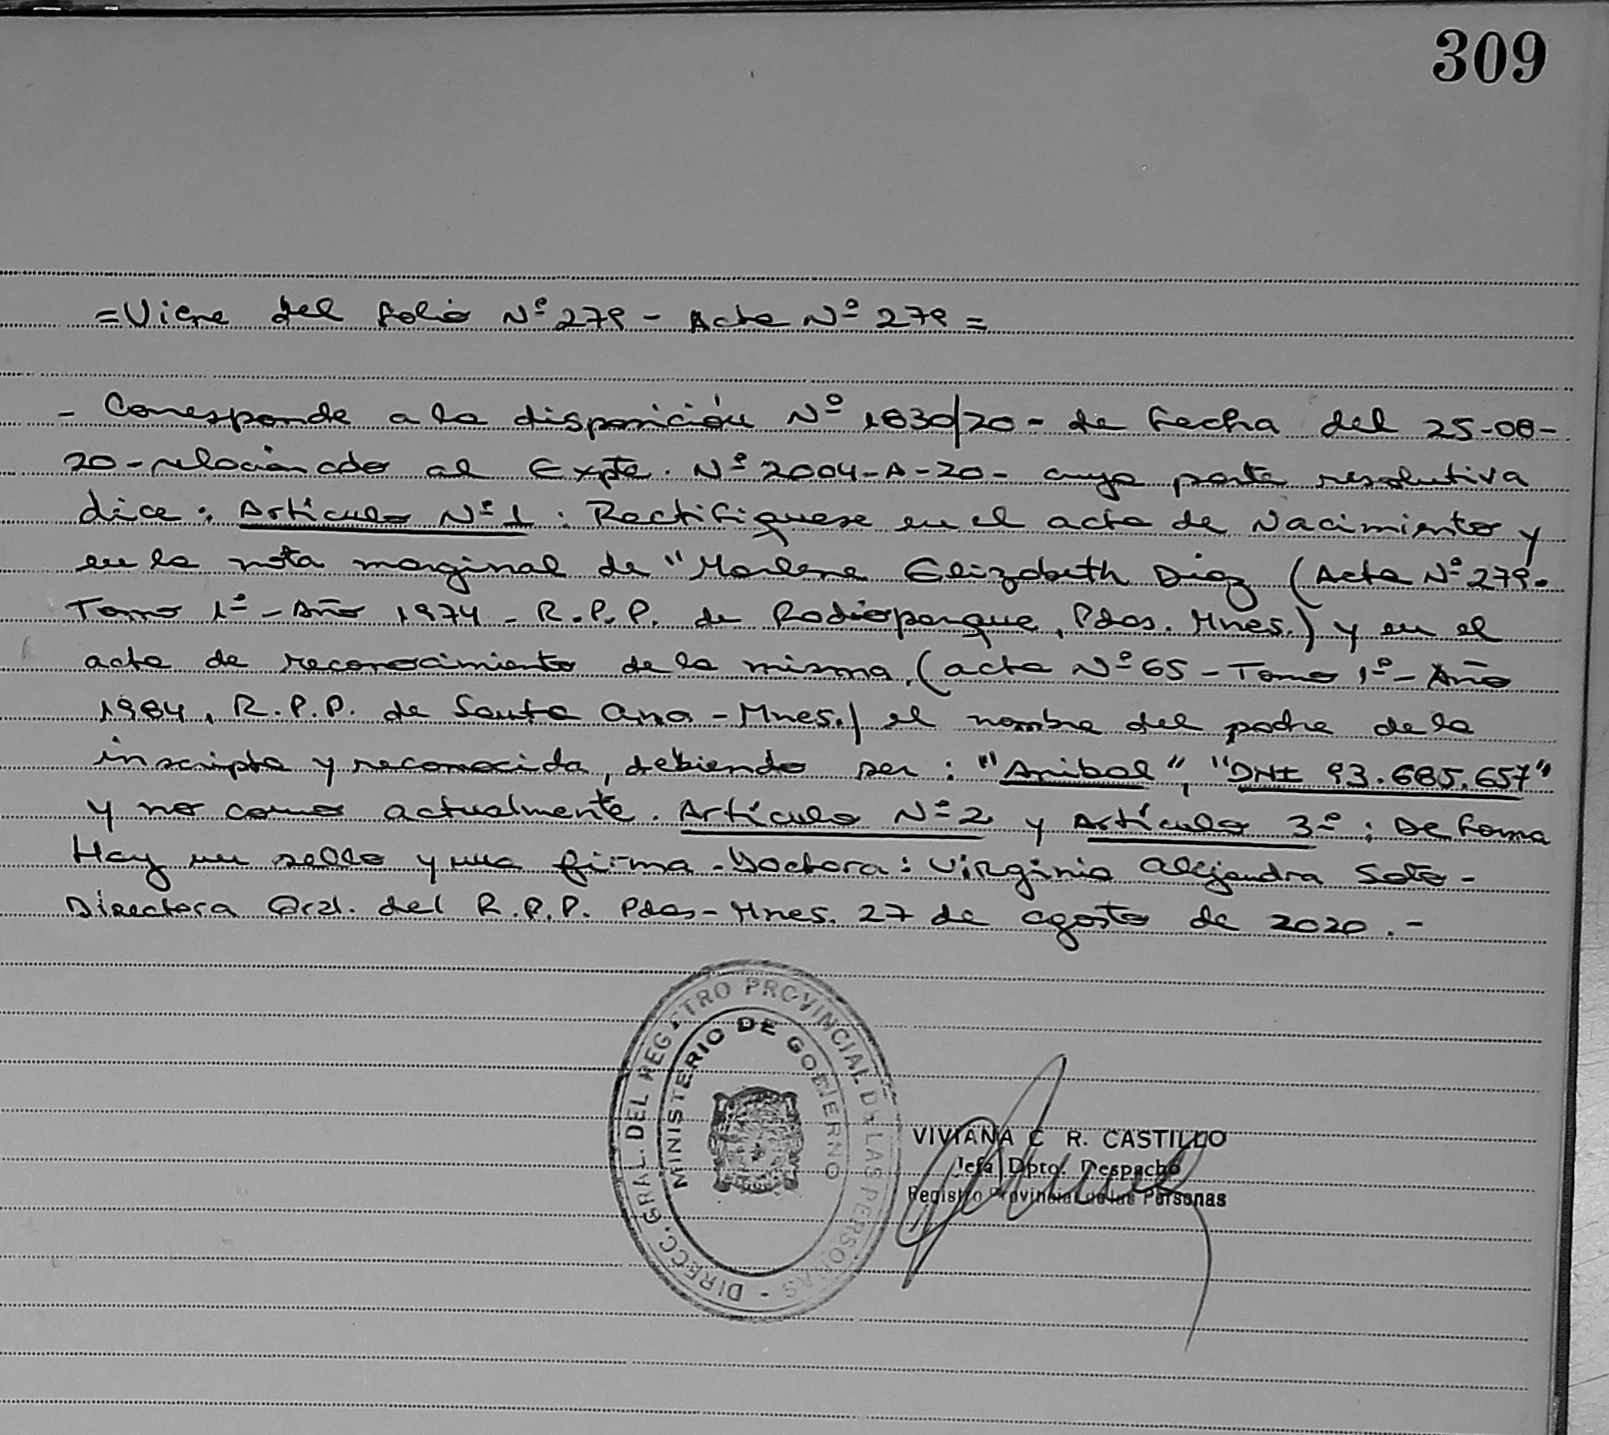 309
=Viene del folio Nº 279 - Acta Nº 279 =
- Corresponde a la disposición Nº 1830/20 - de fecha del 25-08-
20 - relacionado al Expte. Nº 2004-A-20 - cuya parte resolutiva
dice: Artículo Nº 1: Rectifiquese en el acta de Nacimiento y
en la nota marginal de "Marlene Elizabeth Diaz (Acta Nº 279-
Tomo 1º - Año 1974 - R.P.P. de Radioparque, Pdas. Mnes.) y en el
acta de reconocimiento de la misma, (acta Nº 65 - Tomo 1º - Año
1984, R.P.P. de Santa Ana - Mnes.) el nombre del padre de la
inscripta y reconocida, debiendo ser: "Anibal", "DNI 93.685.657"
y no como actualmente. Artículo Nº 2 y Artículo 3º: De forma
Hay un sello y una firma - Doctora: Virginia Alejandra Soto -
Directora Gral. del R.P.P. Pdas - Mnes. 27 de agosto de 2020.-
DIRECC. GRAL. DEL REGISTRO PROVINCIAL DE LAS PERSONAS -
MINISTERIO DE GOBIERNO
VIVIANA C R. CASTILLO
Jefa Dpto. Despacho
Registro Provincial de las Personas